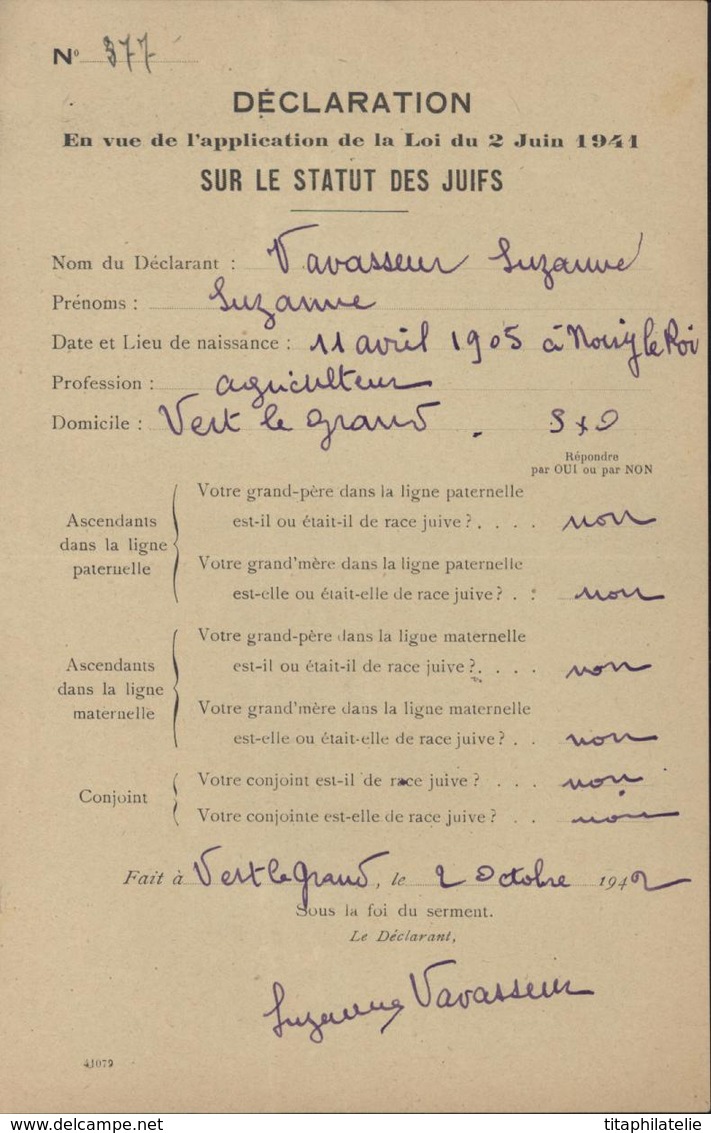 N° 377
DÉCLARATION
En vue de l'application de la Loi du 2 Juin 1941
SUR LE STATUT DES JUIFS
Nom du Déclarant : Vavasseur Suzanne
Prénoms : Suzanne
Date et Lieu de naissance : 11 avril 1905 à Noisy le Roi
Profession : agriculteur
Domicile : Vert le grand . S x O
Répondre
par OUI ou par NON
Ascendants
dans la ligne
paternelle
Votre grand-père dans la ligne paternelle
est-il ou était-il de race juive ? . . . . non
Votre grand'mère dans la ligne paternelle
est-elle ou était-elle de race juive ? . . non
Ascendants
dans la ligne
maternelle
Votre grand-père dans la ligne maternelle
est-il ou était-il de race juive ? . . . . non
Votre grand'mère dans la ligne maternelle
est-elle ou était-elle de race juive ? . . non
Conjoint
Votre conjoint est-il de race juive ? . . . non
Votre conjointe est-elle de race juive ? . . non
Fait à Vert le grand, le 2 Octobre 1942
Sous la foi du serment.
Le Déclarant,
Suzanne Vavasseur
41079
delcampe.net
titaphilatelie